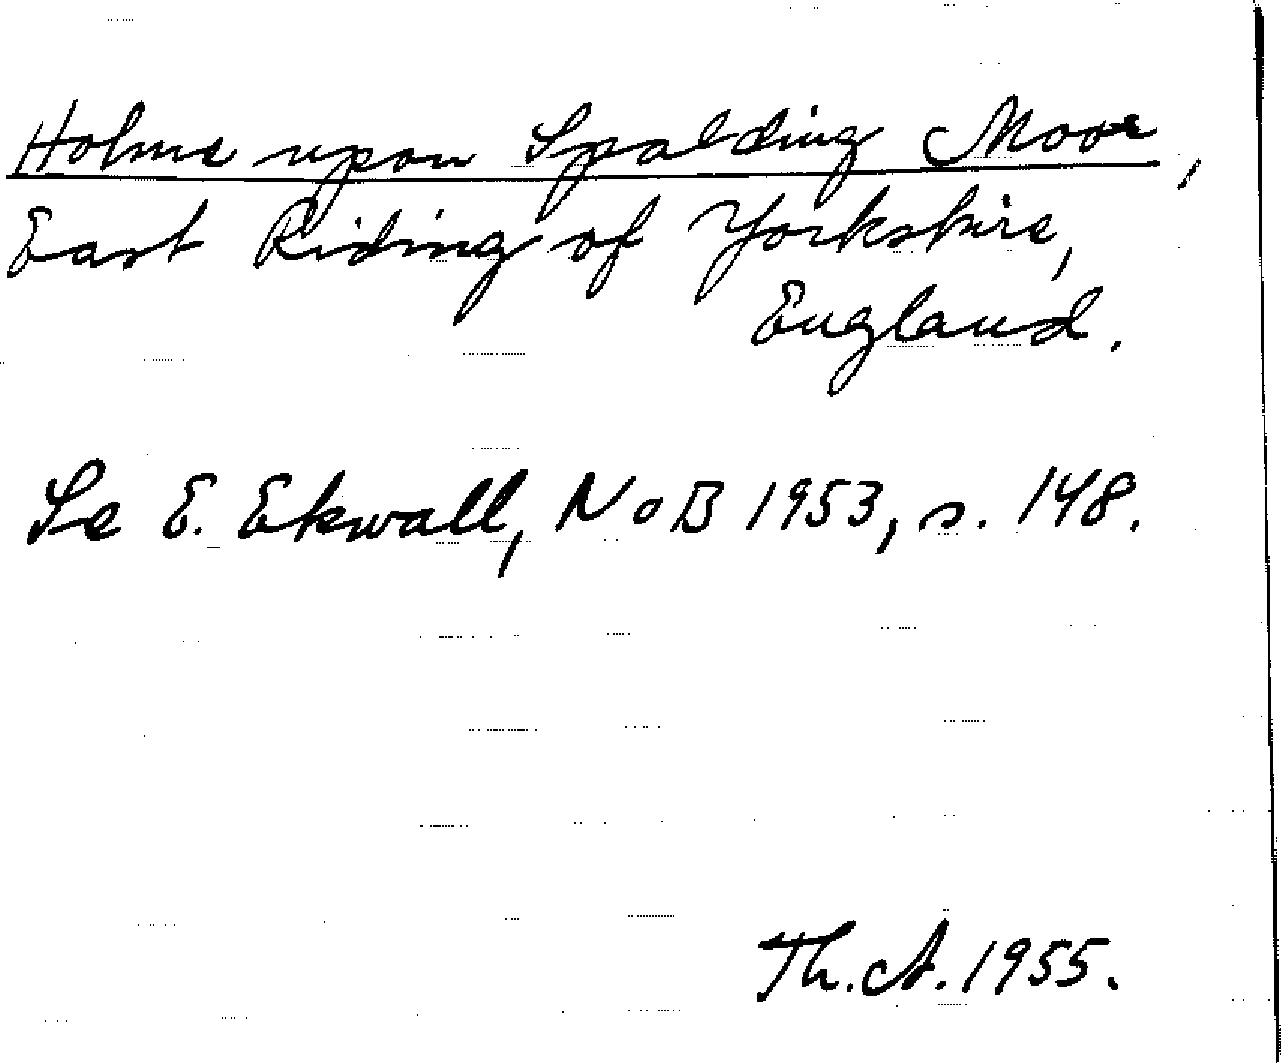 Holme upon Spalding Moor,
East Riding of Yorkshire,
England.
Se E. Ekwall, NoB 1953, s. 148.
Th. A. 1955.